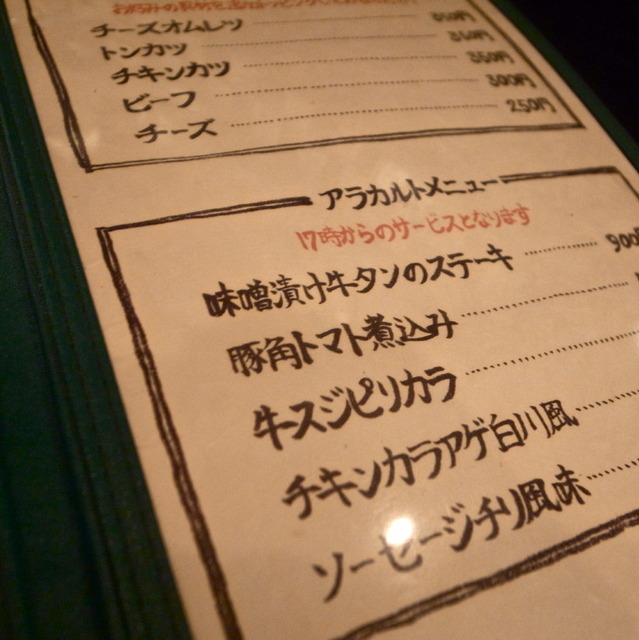 チーズオムレツ
トンカツ 350円
チキンカツ 350円
ビーフ 300円
チーズ 250円
アラカルトメニュー
17時からのサービスとなります
味噌漬け牛タンのステーキ 900円
豚角トマト煮込み
牛スジピリカラ
チキンカラアゲ白川風
ソーセージチリ風味